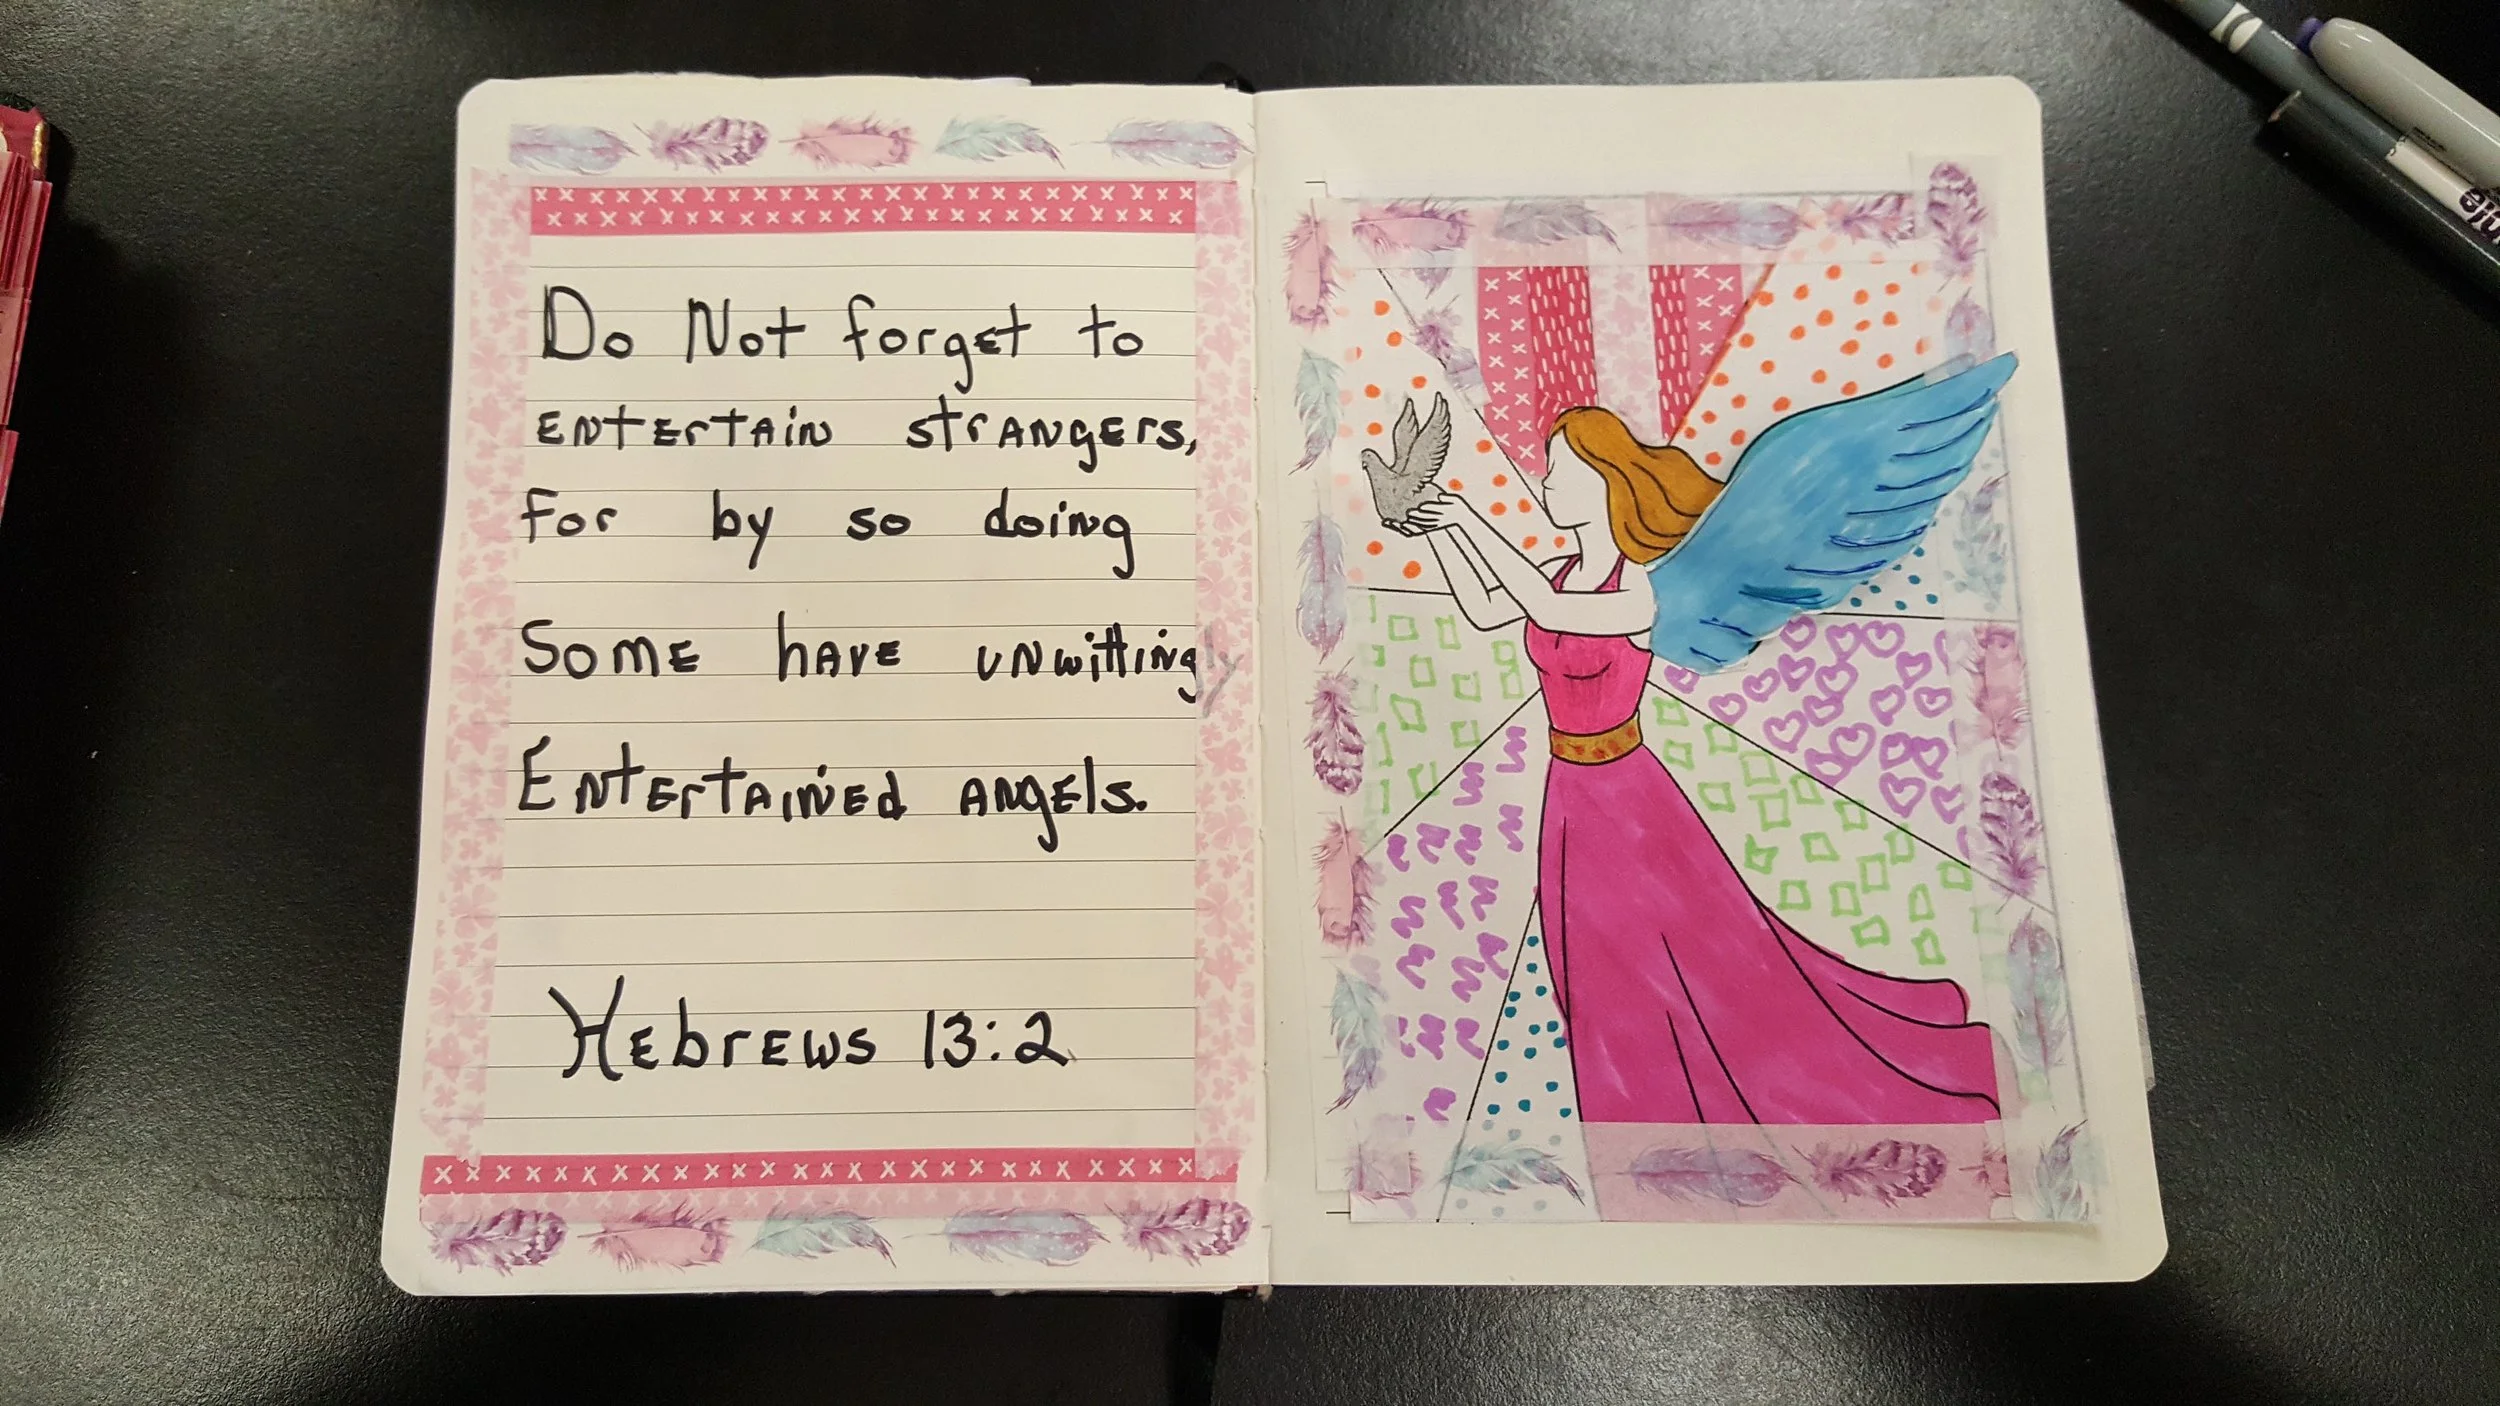 Do Not forget to
entertain strangers,
for by so doing
Some have unwittingly
Entertained angels.
Hebrews 13:2